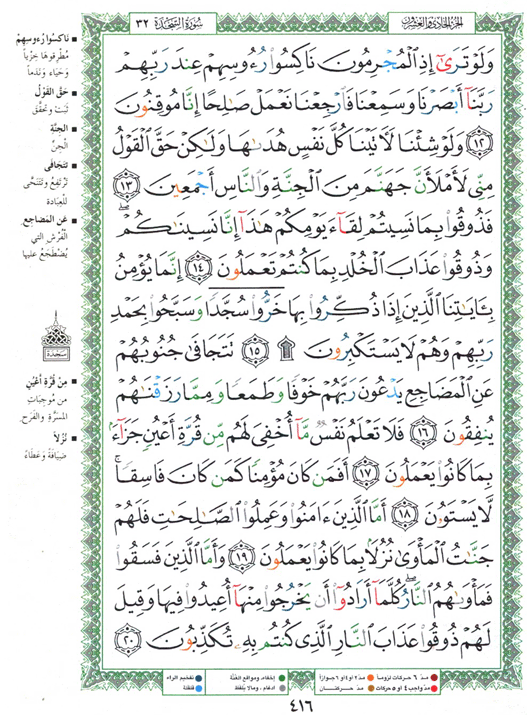 الجزء الحادي والعشرون
سورة السجدة ٣٢
وَلَوْ تَرَىٰٓ إِذِ ٱلْمُجْرِمُونَ نَاكِسُوا۟ رُءُوسِهِمْ عِندَ رَبِّهِمْ
رَبَّنَآ أَبْصَرْنَا وَسَمِعْنَا فَٱرْجِعْنَا نَعْمَلْ صَـٰلِحًا إِنَّا مُوقِنُونَ
١٢ وَلَوْ شِئْنَا لَـَٔاتَيْنَا كُلَّ نَفْسٍ هُدَىٰهَا وَلَـٰكِنْ حَقَّ ٱلْقَوْلُ
مِنِّى لَأَمْلَأَنَّ جَهَنَّمَ مِنَ ٱلْجِنَّةِ وَٱلنَّاسِ أَجْمَعِينَ ١٣
فَذُوقُوا۟ بِمَا نَسِيتُمْ لِقَآءَ يَوْمِكُمْ هَـٰذَآ إِنَّا نَسِينَـٰكُمْ ۖ
وَذُوقُوا۟ عَذَابَ ٱلْخُلْدِ بِمَا كُنتُمْ تَعْمَلُونَ ١٤ إِنَّمَا يُؤْمِنُ
بِـَٔايَـٰتِنَا ٱلَّذِينَ إِذَا ذُكِّرُوا۟ بِهَا خَرُّوا۟ سُجَّدًا وَسَبَّحُوا۟ بِحَمْدِ
رَبِّهِمْ وَهُمْ لَا يَسْتَكْبِرُونَ ۩ ١٥ تَتَجَافَىٰ جُنُوبُهُمْ
عَنِ ٱلْمَضَاجِعِ يَدْعُونَ رَبَّهُمْ خَوْفًا وَطَمَعًا وَمِمَّا رَزَقْنَـٰهُمْ
يُنفِقُونَ ١٦ فَلَا تَعْلَمُ نَفْسٌ مَّآ أُخْفِىَ لَهُم مِّن قُرَّةِ أَعْيُنٍ جَزَآءًۢ
بِمَا كَانُوا۟ يَعْمَلُونَ ١٧ أَفَمَن كَانَ مُؤْمِنًا كَمَن كَانَ فَاسِقًا ۚ
لَّا يَسْتَوُۥنَ ١٨ أَمَّا ٱلَّذِينَ ءَامَنُوا۟ وَعَمِلُوا۟ ٱلصَّـٰلِحَـٰتِ فَلَهُمْ
جَنَّـٰتُ ٱلْمَأْوَىٰ نُزُلًۢا بِمَا كَانُوا۟ يَعْمَلُونَ ١٩ وَأَمَّا ٱلَّذِينَ فَسَقُوا۟
فَمَأْوَىٰهُمُ ٱلنَّارُ ۖ كُلَّمَآ أَرَادُوٓا۟ أَن يَخْرُجُوا۟ مِنْهَآ أُعِيدُوا۟ فِيهَا وَقِيلَ
لَهُمْ ذُوقُوا۟ عَذَابَ ٱلنَّارِ ٱلَّذِى كُنتُم بِهِۦ تُكَذِّبُونَ ٢٠
ناكسوا رءوسهم
مطرقوها خزياً
وحياء وندماً
حق القول
ثبت وتحقق
الجنة
الجن
تتجافى
ترتفع وتتنحى
للعبادة
عن المضاجع
الفرش التي
يضطجع عليها
سجدة
من قرة أعين
من موجبات
المسرة والفرح
نزلاً
ضيافة وعطاءً
مد ٦ حركات لزوماً مد ٢ او ٤ او ٦ جوازاً إخفاء، ومواقع الغنة تفخيم الراء
مد واجب ٤ او ٥ حركات مد حركتان ادغام، وما لا يلفظ قلقلة
٤١٦